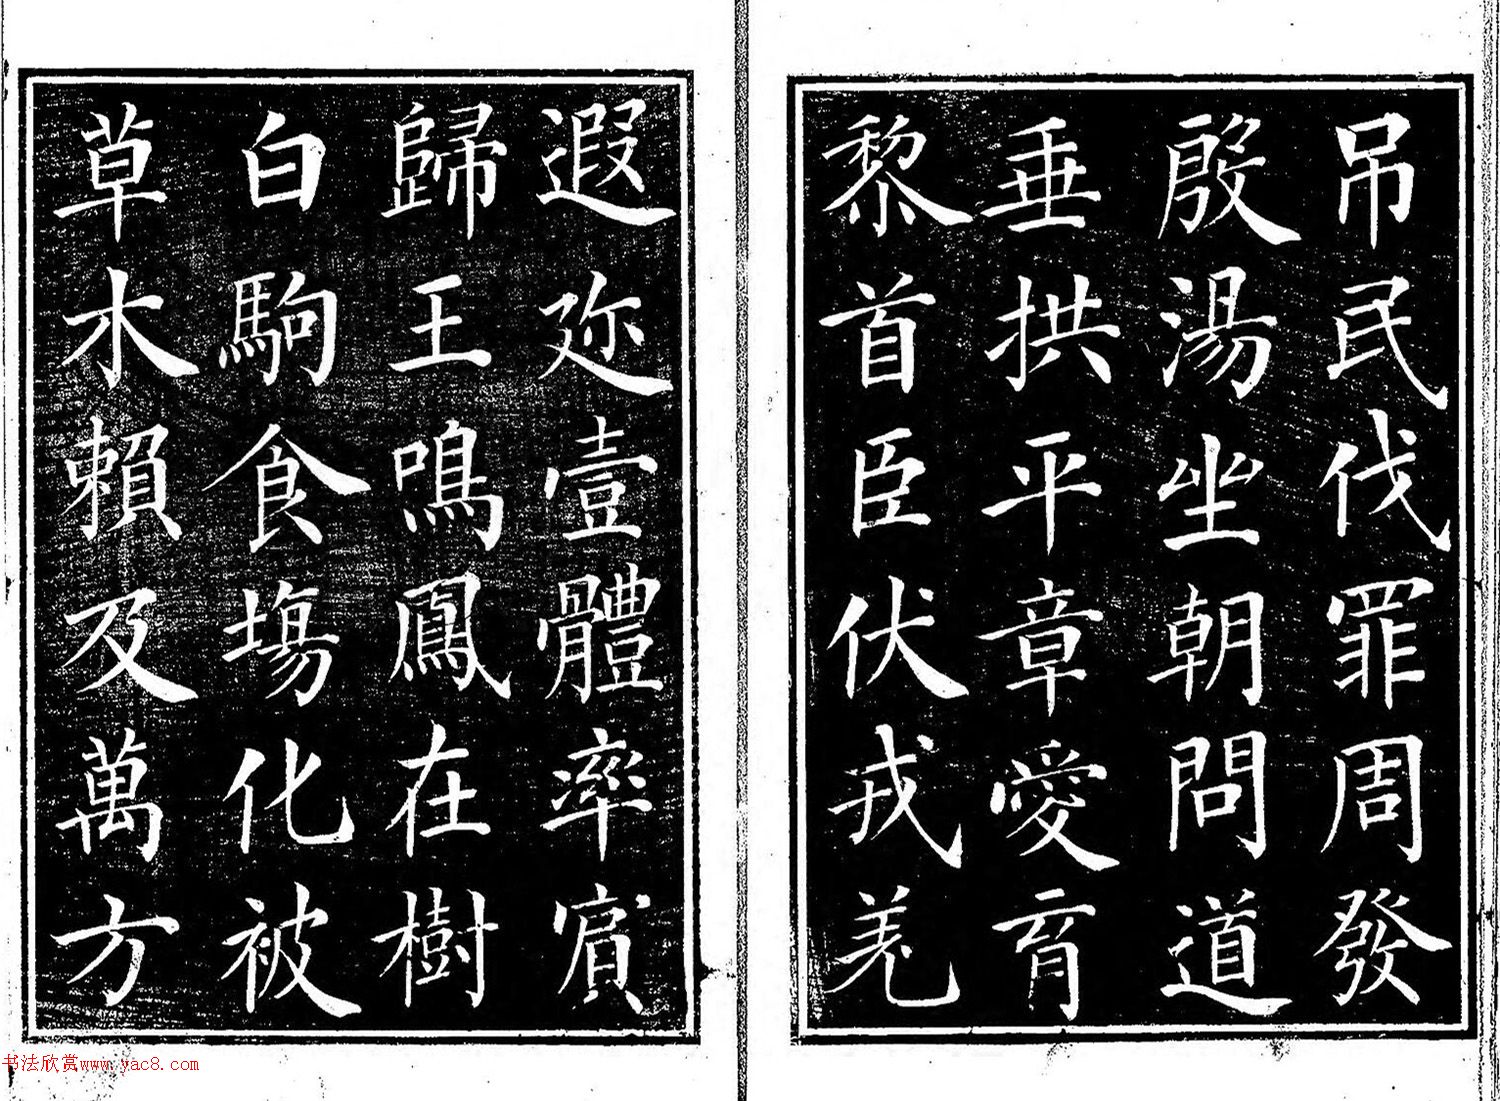 吊民伐罪周發
殷湯坐朝問道
垂拱平章愛育
黎首臣伏戎羌
遐迩壹體率賓
歸王鳴鳳在樹
白駒食塲化被
草木賴及萬方
书法欣赏www.yac8.com